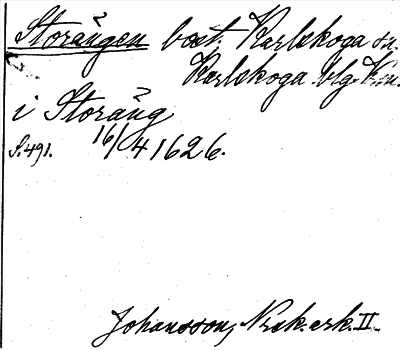 Storängen bost. Karlskoga sn.
Karlskoga blg.
i Storäng
S. 491. 16/4 1626.
Johansson, N:sk. ark. II.